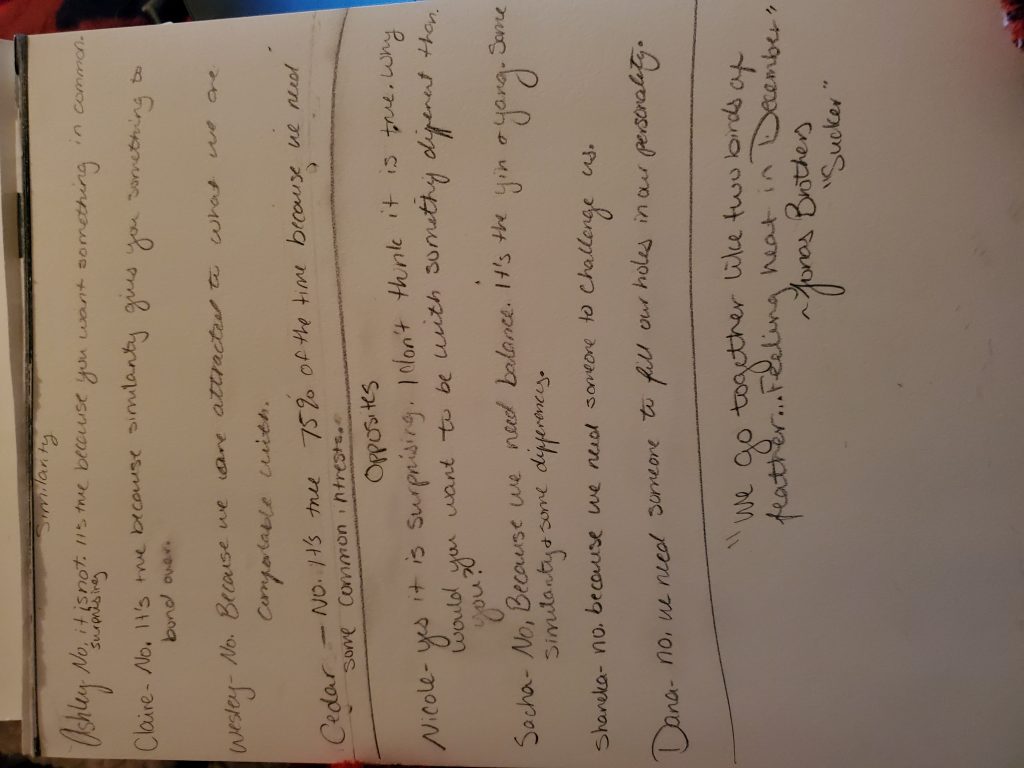 Similarity
Ashley- No, it is not. It is true because you want something in common.
surprising
Claire- No. It's true because similarity gives you something to
bond over.
Wesley- No. Because we are attracted to what we are
comfortable with.
Cedar - No. It's true 75% of the time because we need
some common intrests.
Opposites
Nicole- yes it is surprising. I don't think it is true. Why
would you want to be with somethig different than
you?
Sacha- No, Because we need balance. It's the yin & yang. Some
similarity & some differences.
Shaneka- no. because we need someone to challenge us.
Dana- no. we need someone to fill our holes in our personality.
"We go together like two birds of
feather... Feeling heat in December"
~Jonas Brothers
"Sucker"